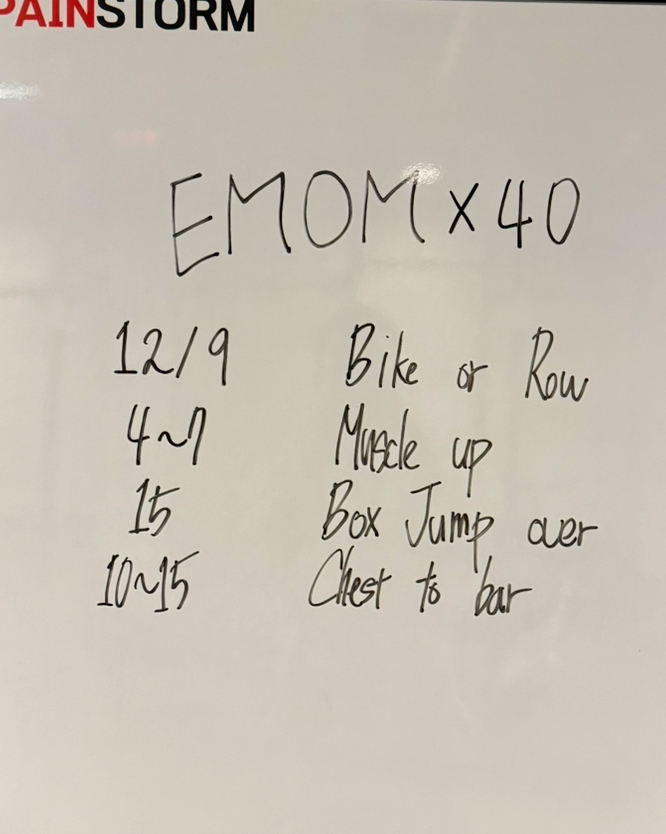 PAINSTORM
EMOM x 40
12/9 Bike or Row
4~7 Muscle up
15 Box Jump over
10~15 Chest to bar